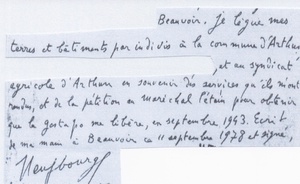 Beauvoir. Je lègue mes
terres et bâtiments par indivis à la commune d'Arthun
, et au syndicat
agricole d'Arthun en souvenir des services qu'ils m'ont
rendus, et de la pétition au maréchal Pétain pour obtenir
que la gestapo me libère, en septembre 1943. Ecrit
de ma main à Beauvoir ce 11 septembre 1978 et signé,
"Neufbourg"